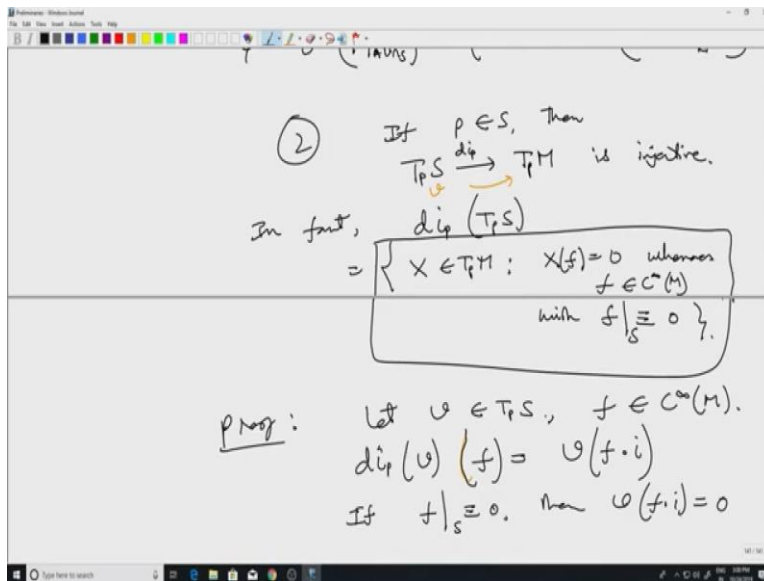 Preliminaries - Windows Journal
File Edit View Insert Actions Tools Help
B I
②
If p ∈ S, then
TₚS diₚ→ TₚM is injective.
v
In fact, diₚ (TₚS)
= { X ∈ TₚM : X(f) = 0 whenever
f ∈ C^∞(M)
with f|_S ≡ 0 }.
Proof: Let v ∈ TₚS, f ∈ C^∞(M).
diₚ(v) (f) = v(f∘i)
If f|_S ≡ 0. then v(f∘i) = 0
141 / 141
Type here to search
ENG
3:08 PM